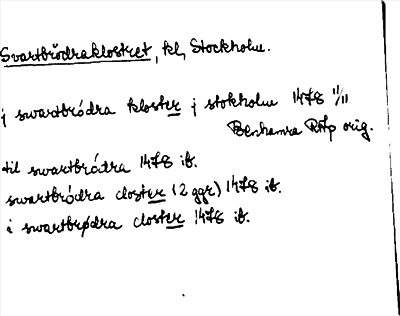 Svartbrödraklostret, kl, Stockholm.
j swartbrödra kloster j stokholm 1478 11/11
Benhamra RApp orig.
til swartbrödra 1478 ib.
swartbródra closter (2 ggr) 1478 ib.
i swartbrødra closter 1478 ib.